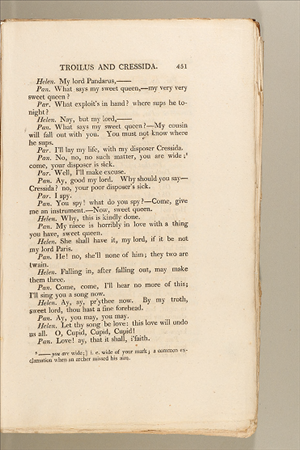 TROILUS AND CRESSIDA. 451
Helen. My lord Pandarus,——
Pan. What says my sweet queen,—my very very
sweet queen?
Par. What exploit's in hand? where sups he to-
night?
Helen. Nay, but my lord,——
Pan. What says my sweet queen?—My cousin
will fall out with you. You must not know where
he sups.
Par. I'll lay my life, with my disposer Cressida.
Pan. No, no, no such matter, you are wide;
come, your disposer is sick.
Par. Well, I'll make excuse.
Pan. Ay, good my lord. Why should you say—
Cressida? no, your poor disposer's sick.
Par. I spy.
Pan. You spy! what do you spy?—Come, give
me an instrument.—Now, sweet queen.
Helen. Why, this is kindly done.
Pan. My niece is horribly in love with a thing
you have, sweet queen.
Helen. She shall have it, my lord, if it be not
my lord Paris.
Pan. He! no, she'll none of him; they two are
twain.
Helen. Falling in, after falling out, may make
them three.
Pan. Come, come, I'll hear no more of this;
I'll sing you a song now.
Helen. Ay, ay, pr'ythee now. By my troth,
sweet lord, thou hast a fine forehead.
Pan. Ay, you may, you may.
Helen. Let thy song be love: this love will undo
us all. O, Cupid, Cupid, Cupid!
Pan. Love! ay, that it shall, i'faith.
—— you are wide;] i. e. wide of your mark; a common ex-
clamation when an archer missed his aim.